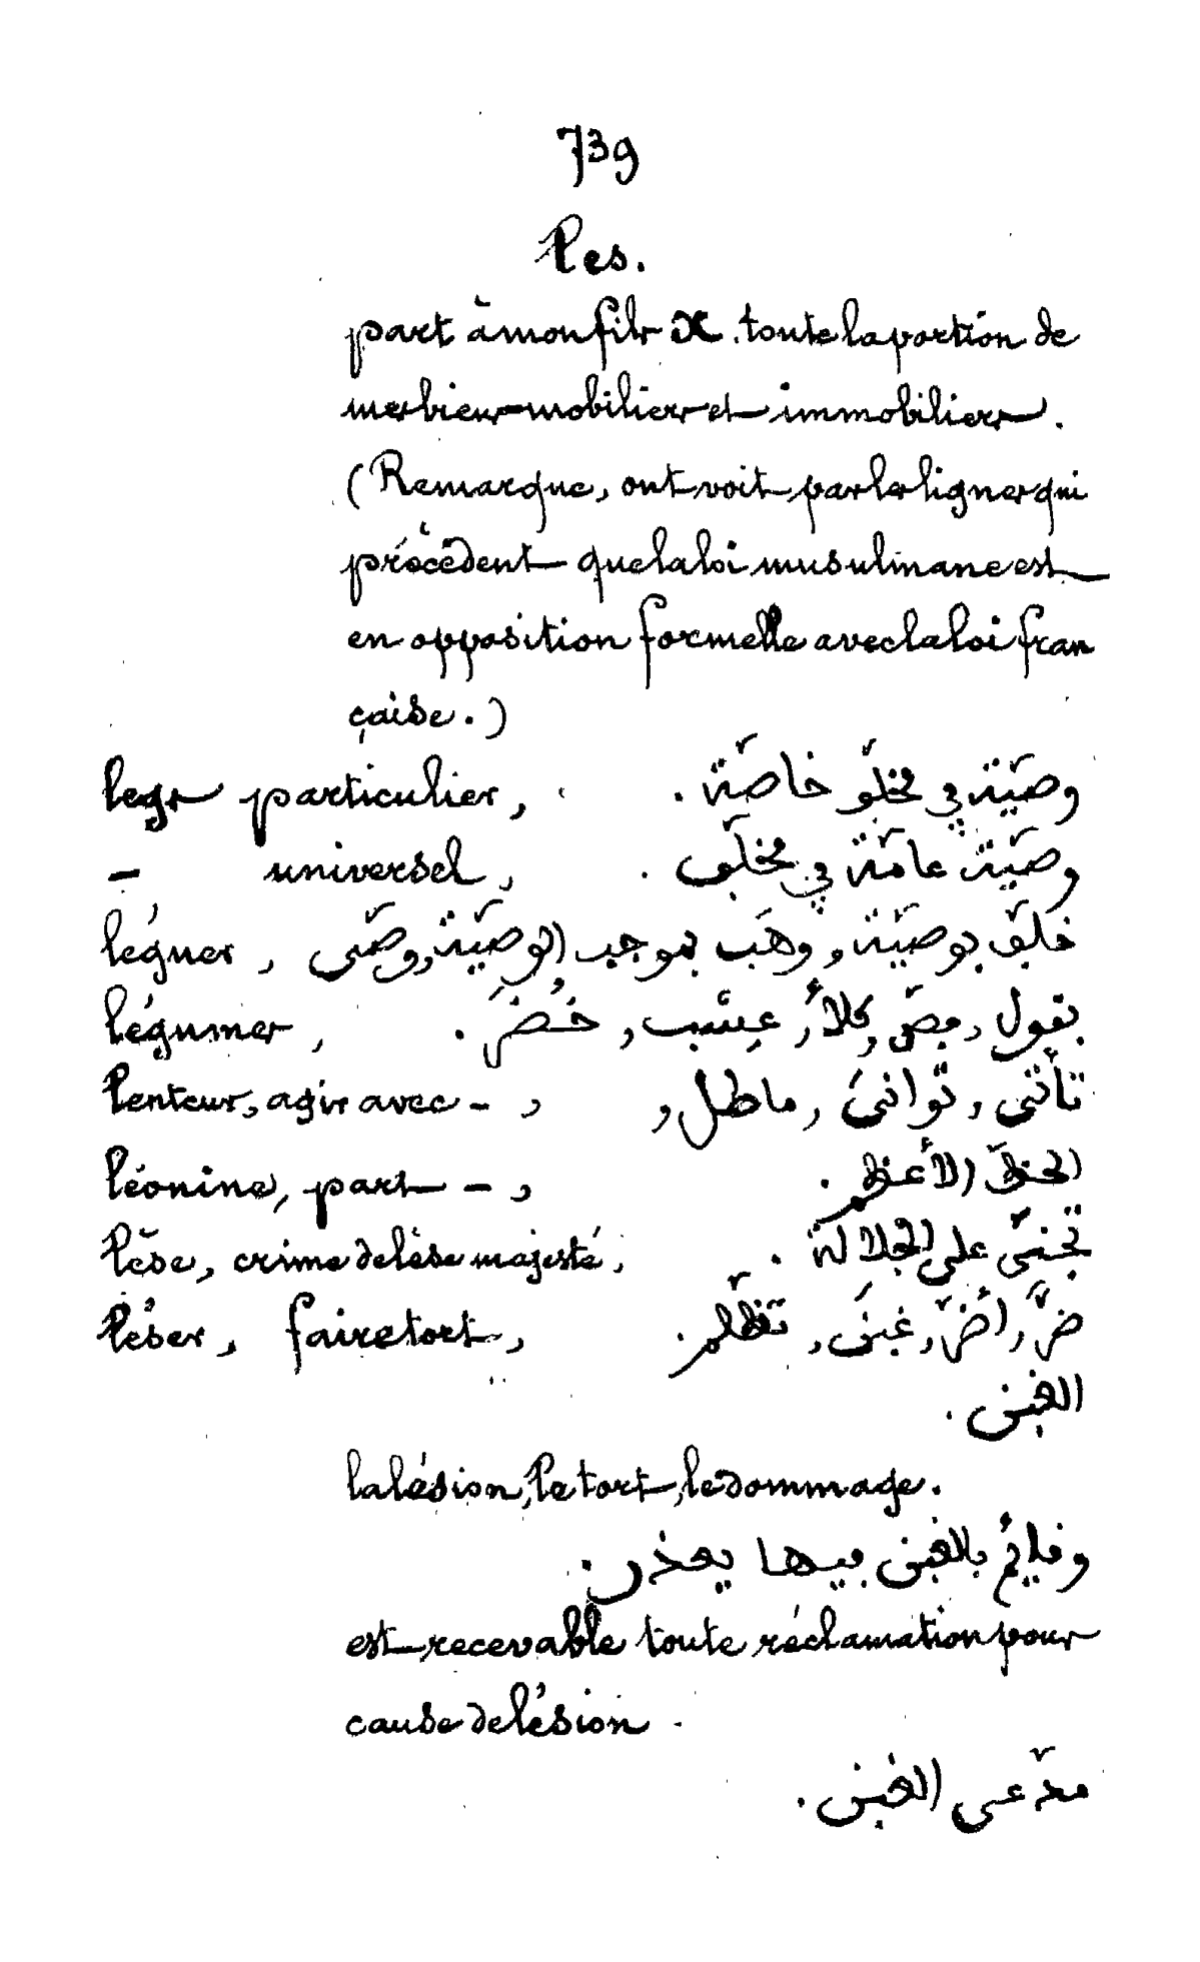 739
Les.
part à mon fils X. toute la portion de
mes biens mobiliers et immobiliers.
(Remarque, ont voit par les lignes qui
précèdent que la loi musulmane est
en opposition formelle avec la loi fran
çaise.)
legs particulier, وصيّة في مخلّف خاصّة.
– universel, وصيّة عامّة في مخلّف.
léguer, خلّف بوصيّة, وهَب بموجب الوصيّة, وصّى
légumes, بقول, كلأ, عشب, خُضَر.
Lenteur, agir avec –, تأنّى, توانى, ماطل,
léonine, part –, الحظّ الأعظم.
lèse, crime de lèse majesté, تجنّى على الجلالة.
léser, faire tort, ضرّ, أضرّ, غبن, تظلّم.
الغبن.
la lésion, le tort, le dommage.
وقايمٌ بالغبن فيها يعذر.
est recevable toute réclamation pour
cause de lésion.
مدّعى الغبن.